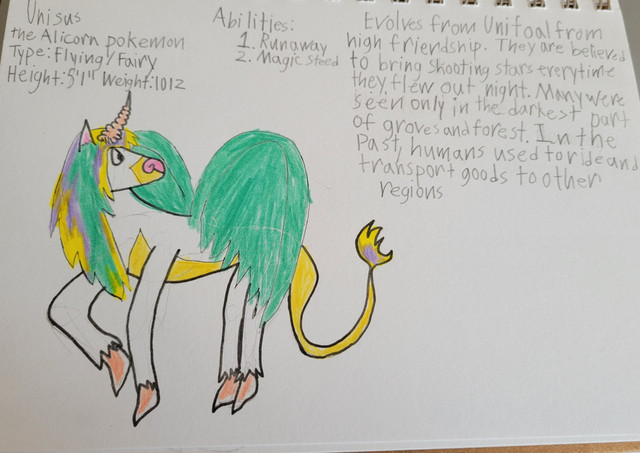 Unisus
the Alicorn pokemon
Type: Flying/Fairy
Height: 5'1" Weight: 1012
Abilities:
1. Runaway
2. Magic Steed
Evolves from Unifoal from
high friendship. They are believed
to bring shooting stars everytime
they flew out night. Many were
seen only in the darkest part
of groves and forest. In the
Past, humans used to ride and
transport goods to other
regions